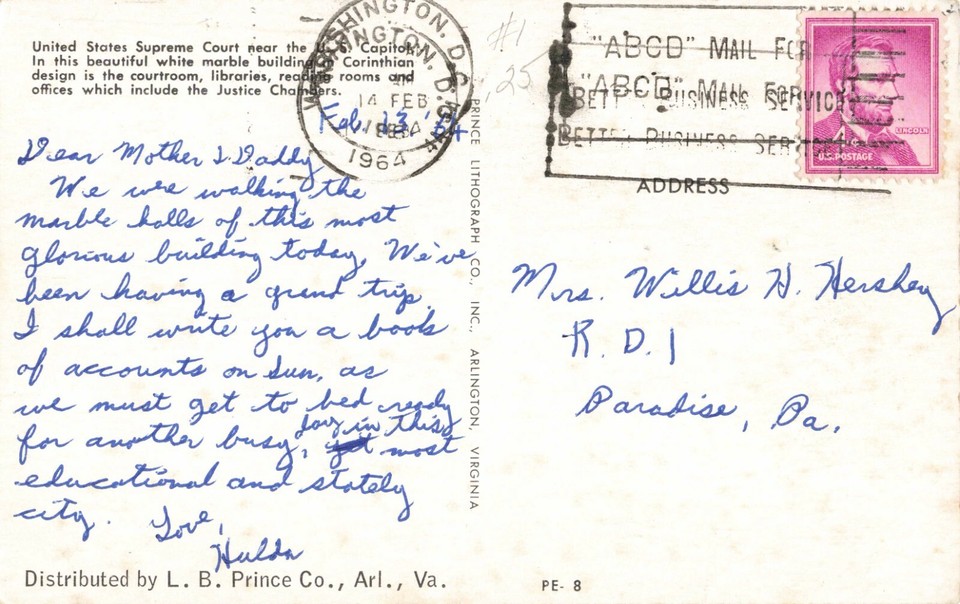 United States Supreme Court near the U. S. Capitol.
In this beautiful white marble building of Corinthian
design is the courtroom, libraries, reading rooms and
offices which include the Justice Chambers.
WASHINGTON, D.C.
14 FEB
1964
#1
.25
"ABCD" MAIL FOR
BETTER BUSINESS SERVICE
"ABCD" MAIL FOR
BETTER BUSINESS SERVICE
LINCOLN
U.S. POSTAGE
Feb. 13 '64
Dear Mother & Daddy
We were walking the
marble halls of this most
glorious building today. We've
been having a grand trip.
I shall write you a book
of accounts on Sun, as
we must get to bed ready
for another busy day in this
most
educational and stately
city. Love,
Hulda
PRINCE LITHOGRAPH CO., INC., ARLINGTON, VIRGINIA
ADDRESS
Mrs. Willis H. Hershey
R. D. 1
Paradise, Pa.
Distributed by L. B. Prince Co., Arl., Va.
PE- 8